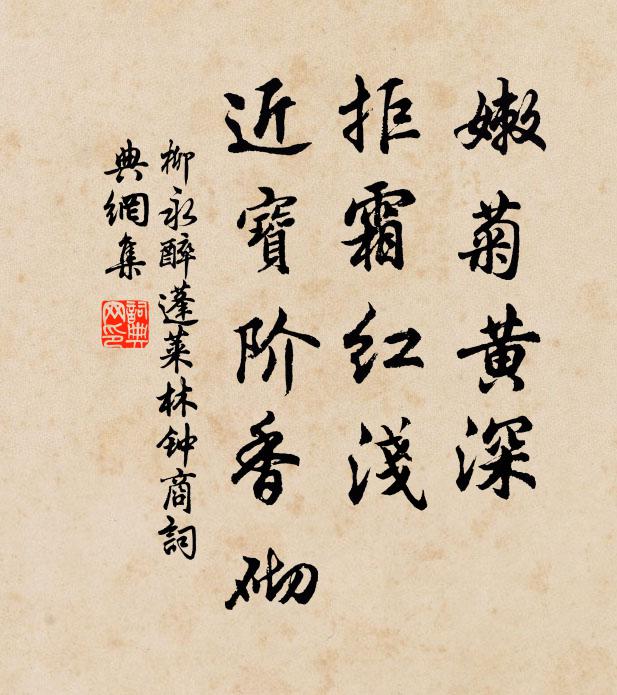 嫩菊黄深
拒霜红淺
近寶阶香砌
柳永醉蓬莱林钟商詞
典網集
詞典网印